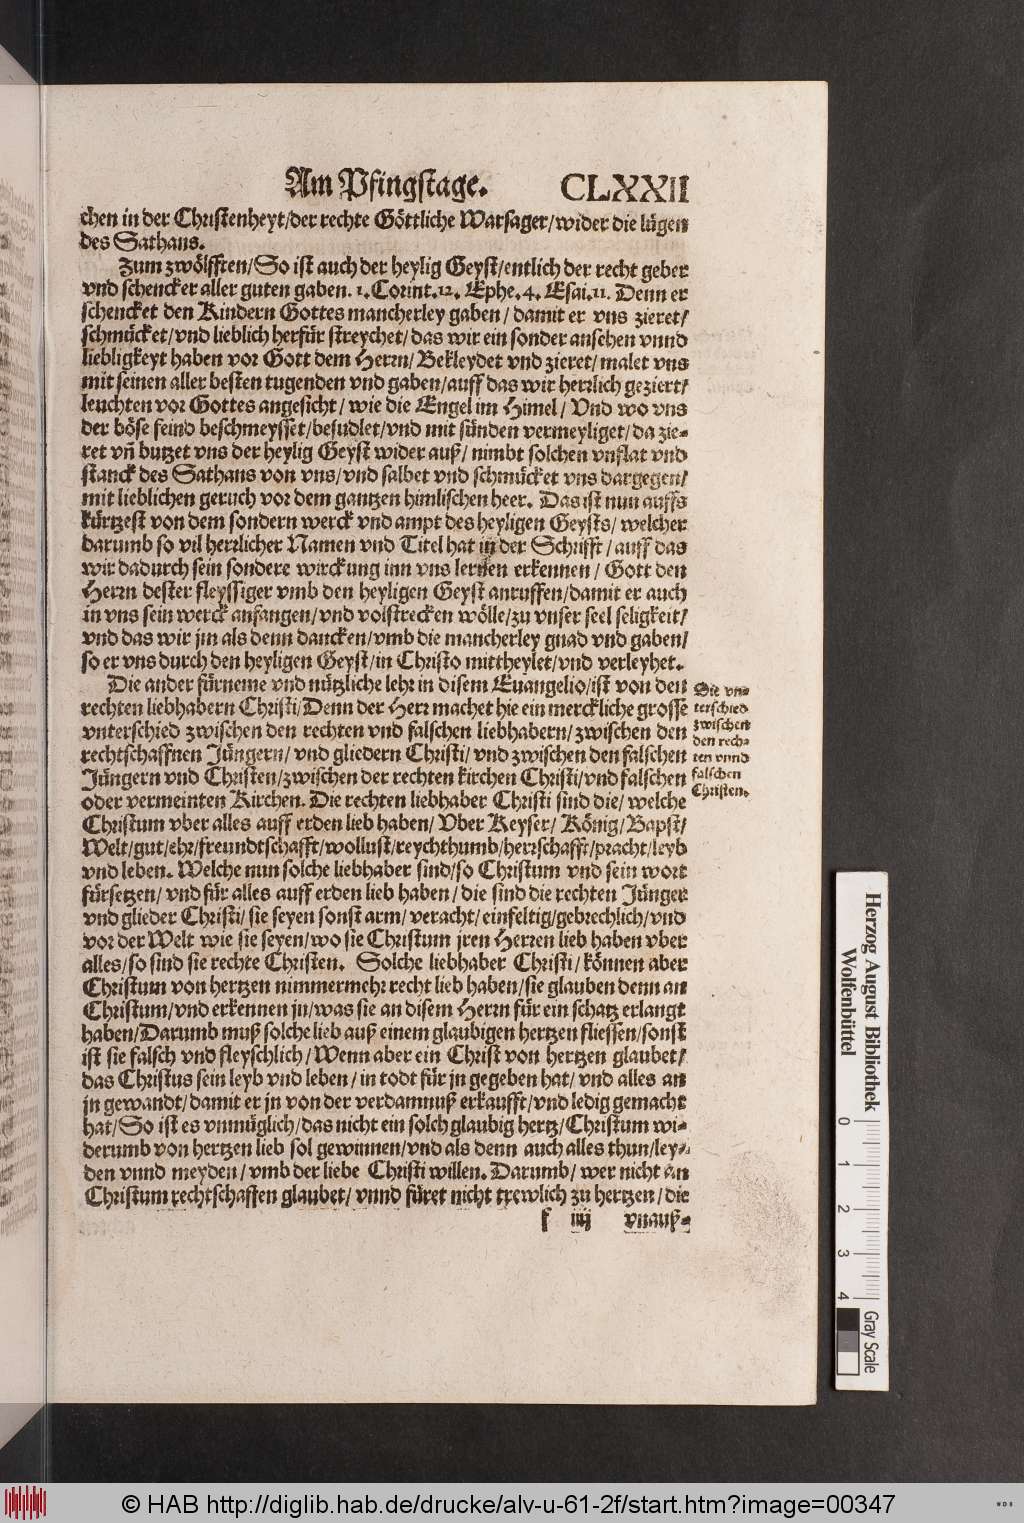 Am Pfingstage. CLXXII
chen in der Christenheyt/der rechte Göttliche Warsager/wider die lügen
des Sathans.
Zum zwölfften/So ist auch der heylig Geyst/entlich der recht geber
vnd schencker aller guten gaben. 1. Corint. 12. Ephe. 4. Esai. 11. Denn er
schencket den Kindern Gottes mancherley gaben/damit er vns zieret/
schmücket/vnd lieblich herfür streychet/das wir ein sonder ansehen vnnd
liebligkeyt haben vor Gott dem Herrn/Bekleydet vnd zieret/malet vns
mit seinen aller besten tugenden vnd gaben/auff das wir herrlich geziert/
leuchten vor Gottes angesicht/wie die Engel im Himel/Vnd wo vns
der böse feind beschmeysset/besudlet/vnd mit sünden vermeyliget/da zie-
ret vñ butzet vns der heylig Geyst wider auß/nimbt solchen vnflat vnd
stanck des Sathans von vns/vnd salbet vnd schmücket vns dargegen/
mit lieblichen geruch vor dem gantzen himlischen heer. Das ist nun auffs
kürtzest von dem sondern werck vnd ampt des heyligen Geysts/welcher
darumb so vil herrlicher Namen vnd Titel hat in der Schrifft/auff das
wir dadurch sein sondere wirckung inn vns lernen erkennen/Gott den
Herrn dester fleyssiger vmb den heyligen Geyst anruffen/damit er auch
in vns sein werck anfangen/vnd volstrecken wölle/zu vnser seel seligkeit/
vnd das wir jm als denn dancken/vmb die mancherley gnad vnd gaben/
so er vns durch den heyligen Geyst/in Christo mittheylet/vnd verleyhet.
Die ander fürneme vnd nützliche lehr in disem Euangelio/ist von den
rechten liebhabern Christi/Denn der Herr machet hie ein merckliche grosse
vnterschied zwischen den rechten vnd falschen liebhabern/zwischen den
rechtschaffnen Jüngern/vnd gliedern Christi/vnd zwischen den falschen
Jüngern vnd Christen/zwischen der rechten kirchen Christi/vnd falschen
oder vermeinten Kirchen. Die rechten liebhaber Christi sind die/welche
Christum vber alles auff erden lieb haben/Vber Keyser/König/Bapst/
Welt/gut/ehr/freundtschafft/wollust/reychthumb/herrschafft/pracht/leyb
vnd leben. Welche nun solche liebhaber sind/so Christum vnd sein wort
fürsetzen/vnd für alles auff erden lieb haben/die sind die rechten Jünger
vnd glieder Christi/sie seyen sonst arm/veracht/einfeltig/gebrechlich/vnd
vor der Welt wie sie seyen/wo sie Christum jren Herren lieb haben vber
alles/so sind sie rechte Christen. Solche liebhaber Christi/können aber
Christum von hertzen nimmermehr recht lieb haben/sie glauben denn an
Christum/vnd erkennen jn/was sie an disem Herrn für ein schatz erlangt
haben/Darumb muß solche lieb auß einem glaubigen hertzen fliessen/sonst
ist sie falsch vnd fleyschlich/Wenn aber ein Christ von hertzen glaubet/
das Christus sein leyb vnd leben/in todt für jn gegeben hat/vnd alles an
jn gewandt/damit er jn von der verdamnuß erkaufft/vnd ledig gemacht
hat/So ist es vnmüglich/das nicht ein solch glaubig hertz/Christum wi-
derumb von hertzen lieb sol gewinnen/vnd als denn auch alles thun/ley-
den vnnd meyden/vmb der liebe Christi willen. Darumb/wer nicht an
Christum rechtschaffen glaubet/vnnd füret nicht trewlich zu hertzen/die
f iiij vnauß-
Die vn-
terschied
zwischen
den rech-
ten vnnd
falschen
Christen.
Herzog August Bibliothek
Wolfenbüttel
0 1 2 3 4
Gray Scale
© HAB http://diglib.hab.de/drucke/alv-u-61-2f/start.htm?image=00347